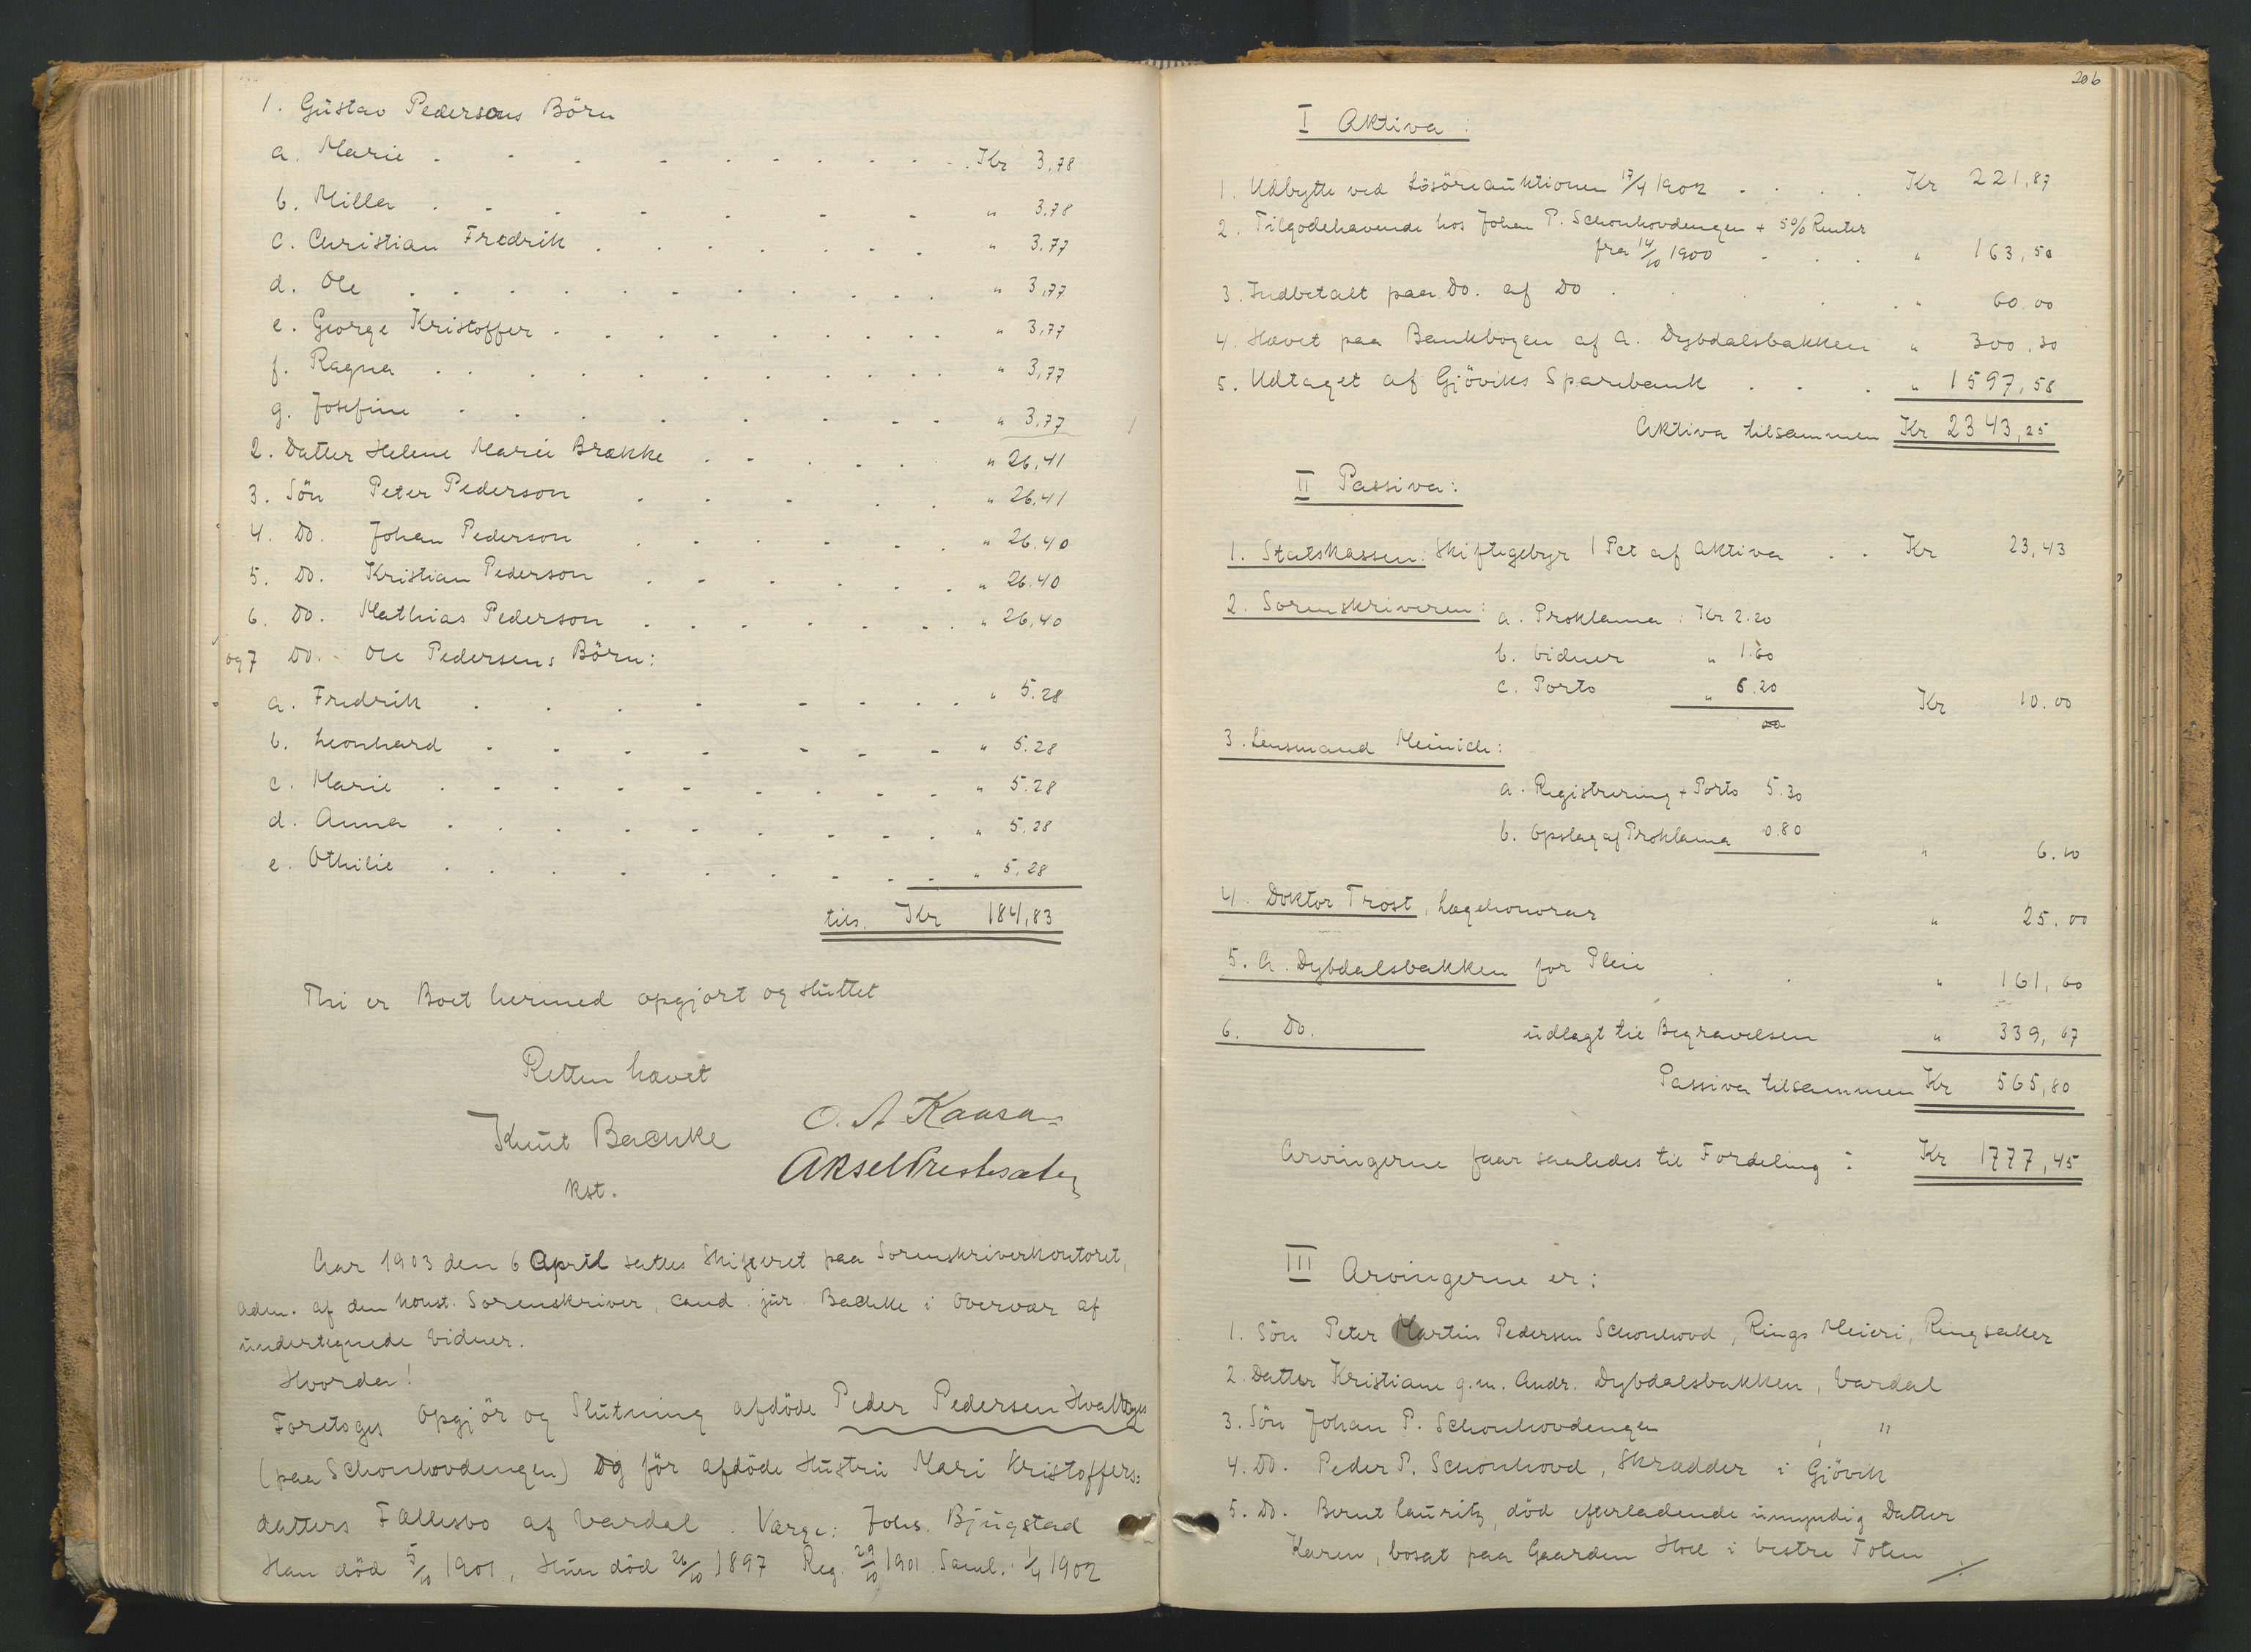 1. Gustav Pedersens Börn
a. Marie . . . . . . . . . Kr 3,78
b. Milla . . . . . . . " 3.78
c. Christian Fredrik . . . . . . . " 3,77
d. Ole . . . . . . . . . . " 3,77
e. George Kristoffer . . . . . . . . . " 3,77
f. Ragna . . . . . . . . . . " 3,77
g. Josefine . . . . . . . . " 3,77
2. Datter Helene Marie Brække . . . . . " 26,41
3. Sön Peter Pederson . . . . . " 26.41
4. Do. Johan Pederson . . . . . . " 26.40
5. Do. Kristian Pederson . . . . . . " 26.40
6. Do. Mathias Pederson . . . . . . . " 26,40
og 7 Do. Ole Pedersens Börn:
a. Fredrik . . . . . . . . " 5.28
b. Leonhard . . . . . . . " 5.28
c. Marie . . . . . . . . . " 5.28
d. Anna . . . . . . . . . " 5.28
e. Othilie . . . . . . . . . " 5,28
tils. Kr 184,83
Thi er Boet hermed opgjort og sluttet
Retten hævet
Knut Bachke O. A. Kaasa
kst. Aksel Prestesæter
Aar 1903 den 6 April sattes Skifteret paa Sorenskriverkontoret,
adm. af den konst. Sorenskriver, cand. jur. Bachke i Overvær af
undertegnede Vidner.
Hvorda!
Foretoges Opgjör og Slutning afdöde Peder Pedersen
(paa Schonhovdengen) og för afdöde Hustru Mari Kristoffers=
datters Fællesbo af Vardal. Værge: Johs. Bjugstad
Han död 5/10 1901, Hun död 26/10 1897 Reg. 29/10 1901. Saml. 1/4 1902
206
I Aktiva:
1. Udbytte ved Lösöreauktionen 17/4 1902 . . . . Kr 221,87
2. Tilgodehavende hos Johan P. Schonhovdengen + 5% Renter
fra 14/10 1900 . . . " 163,50
3. Indbetalt paa Do. af Do . . . . " 60.00
4. Hævet paa Bankbogen af A. Dybdalsbakken " 300,30
5. Udtaget af Gjöviks Sparebank . . . " 1597,58
Aktiva tilsammen Kr 2343,25
II Passiva:
1. Statskassen: Skiftegebyr 1 Pct af Aktiva . . Kr 23,43
2. Sorenskriveren: a. Proklama: Kr 2.20
b. Vidner " 1.60
c. Porto " 6.20
Kr 10.00
3. Lensmand Meinich:
a. Registrering + Porto 5.30
b. Opslag af Proklama 0.80
" 6.10
4. Doktor Trost, Lægehonorar " 25.00
5. A. Dybdalsbakken for Pleie . . " 161,60
6. Do. udlagt til Begravelsen " 339,67
Passiva tilsammen Kr 565,80
Arvingerne faar saaledes til Fordeling: Kr 1777,45
III Arvingerne er:
1. Sön Peter Martin Pedersen Schonhovd, Rings Meieri, Ringsaker
2. Datter Kristiane g.m. Andr. Dybdalsbakken, Vardal
3. Sön Johan P. Schonhovdengen , "
4. Do. Peder P. Schonhovd, Skrædder i Gjövik
5. Do. Bernt Lauritz, död efterladende umyndig Datter
Karen, bosat paa Gaarden Hoel i Vestre Toten ./.